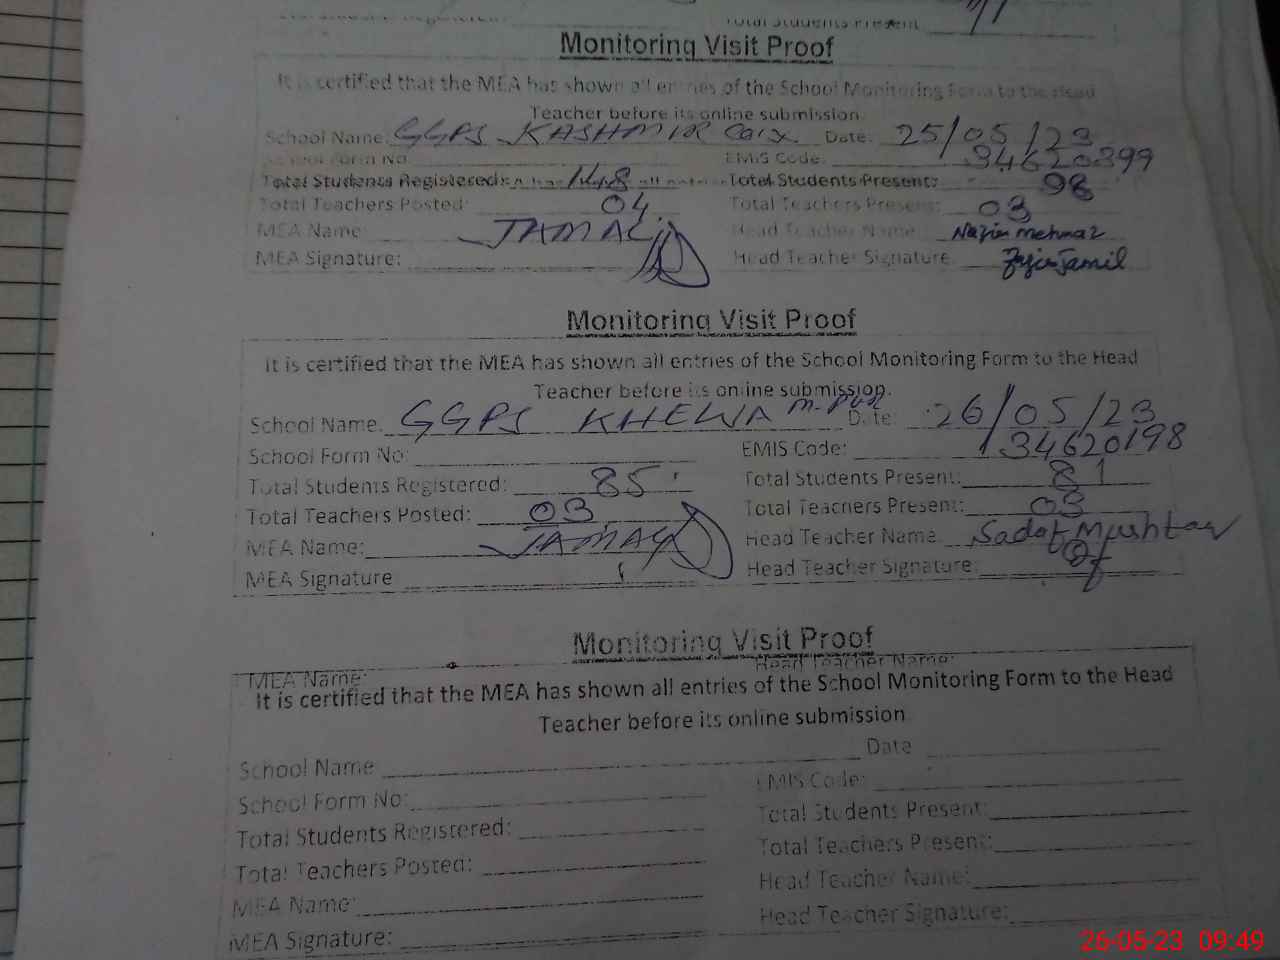 Total Students Present
Monitoring Visit Proof
It is certified that the MEA has shown all entries of the School Monitoring Form to the Head
Teacher before its online submission.
School Name: GGPS KASHMIR Date: 25/05/23
School Form No EMIS Code: 34620399
Total Students Registered: 148 Total Students Present: 98
Total Teachers Posted: 04 Total Teachers Present: 03
MEA Name JAMAL Head Teacher Name
MEA Signature: Head Teacher Signature
Monitoring Visit Proof
It is certified that the MEA has shown all entries of the School Monitoring Form to the Head
Teacher before its online submission.
School Name. GGPS KHEWA Date: 26/05/23
School Form No: EMIS Code: 34620198
Total Students Registered: 85 Total Students Present: 81
Total Teachers Posted: 03 Total Teachers Present: 03
MEA Name: JAMAL Head Teacher Name Sadaf Mushtaq
MEA Signature Head Teacher Signature:
Monitoring Visit Proof
MEA Name: Head Teacher Name:
It is certified that the MEA has shown all entries of the School Monitoring Form to the Head
Teacher before its online submission
School Name Date
School Form No: EMIS Code:
Total Students Registered: Total Students Present:
Total Teachers Posted: Total Teachers Present:
MEA Name: Head Teacher Name:
MEA Signature: Head Teacher Signature:
26-05-23 09:49